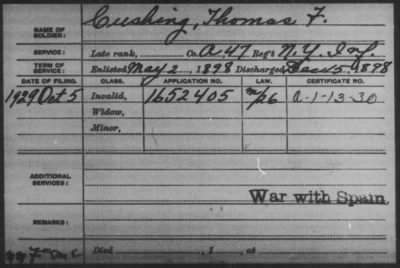 NAME OF SOLDIER: Cushing, Thomas F.
SERVICE: Late rank, Co. A. 47 Reg't N.Y. Inf.
TERM OF SERVICE: Enlisted May 2, 1898 Discharged 5, 1898
DATE OF FILING. CLASS. APPLICATION NO. LAW. CERTIFICATE NO.
1929 Oct 5 Invalid, 1652405 a-1-13-30
Widow,
Minor,
ADDITIONAL SERVICES:
War with Spain.
REMARKS:
Died , 1 , at